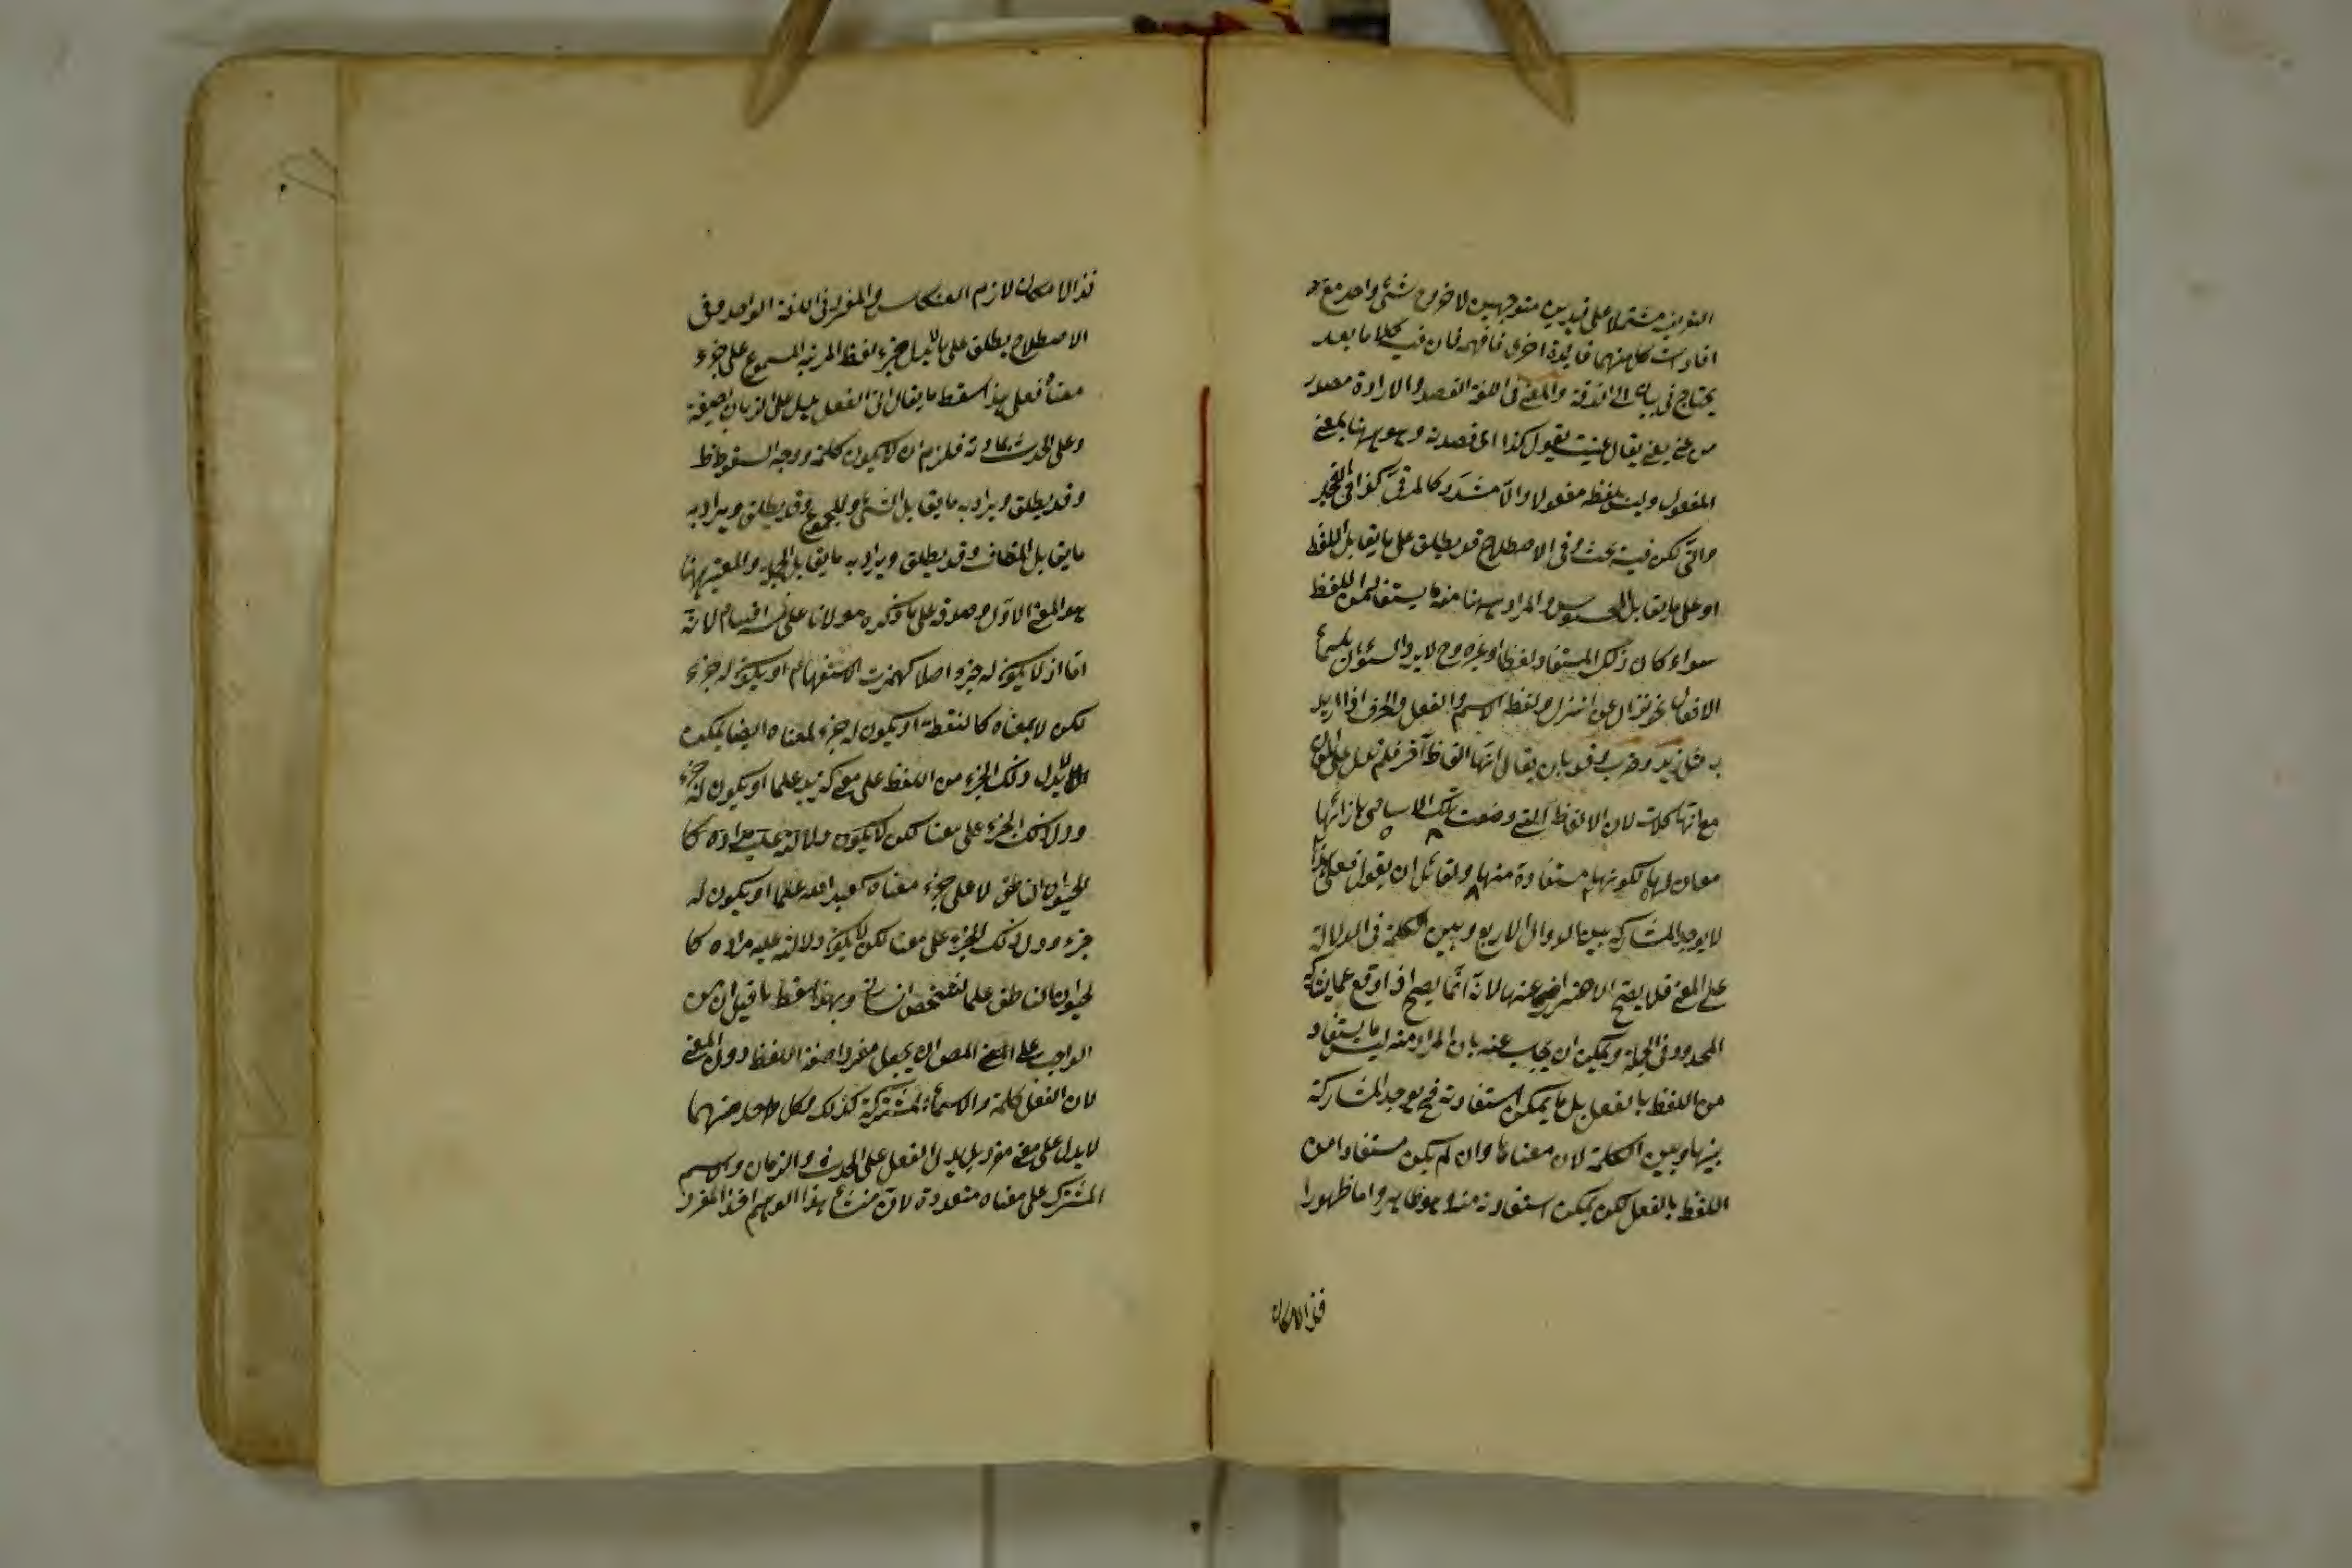 التعريف مشتملا على قيدين متوجهين لاخراج شئ واحد مع
افادت كل منهما فايدة اخرى فافهم فان فيه كلاما بعد
يحتاج في بيانه الى الدقة والمعنى في اللغة القصد والارادة مصدر
من عنى يعنى يقال عنيت بقول كذا اى قصدته وهو ههنا بمعنى
المفعول وليس بلفظه مفعولا والا مشدد كالمرقى كذا في
والتى لكن فيه بحث وفى الاصطلاح قد يطلق على ما يقابل اللفظ
او على ما يقابل المحسوس والمراد ههنا منه ما يستفاد من اللفظ
سواء كان ذلك المستفاد لفظا او غيره وح لا يرد السئوال باسماء
الافعال نحو نزال عن انزل ولفظ الاسم والفعل والحرف اذا اريد
به مثل زيد وضرب وقد بان يقال انها الفاظ آخر فلم تدل على المعانى
مع انها كلمات لان الالفاظ التى وضعت تلك الاسامى بازائها
معان لها لكونها مستفادة منها ولقائل ان يقول فعلى هذا
لا يوجد المشاركة بين الدوال الاربع وبين الكلمة في الدلالة
على المعنى فلا يصح الاحتراز عنها لانه انما يصح اذا وقع مما يشاركه
المحدود فى الجملة ويمكن ان يجاب عنه بان المراد منه ليس ما يستفاد
من اللفظ بالفعل بل ما يمكن استفادته فح يوجد المشاركة
بينها وبين الكلمة لان معناها وان لم يكن مستفادا من
اللفظ بالفعل لكن يمكن استفادته منه وهو ظاهر واما ظهورا
فذ الامكان
فذ الامكان لازم العكس والمفرد فى اللغة الواحد وفى
الاصطلاح يطلق على ما لا يدل جزء لفظ المرتب المسموع على جزء
معناه فعلى هذا سقط ما يقال ان الفعل يدل على الزمان بصيغة
وعلى الحدث بمادته فلزم ان لا يكون كلمة ووجه السقوط ظ
وقد يطلق ويراد به ما يقابل المثنى والمجموع وقد يطلق ويراد به
ما يقابل المضاف وقد يطلق ويراد به ما يقابل الجملة والمعتبر ههنا
هو المعنى الاول وصدقه على ما ذكره مولانا على خمسة اقسام لانه
اما ان لا يكون له جزء اصلا كهمزت الاستفهام او يكون له جزء
لكن لا لمعناه كالنقطة او يكون له جزء لمعناه ايضا لكن
لا يدل ذلك الجزء من اللفظ على معنى كزيد علما او يكون له جزء
ودل ذلك الجزء على معنا لكن لا يكون دلالته عليه مراده كا
لحيوان الناطق لا على جزء معناه كعبد الله علما او يكون له
جزء ودل ذلك الجزء على معنا لكن لا يكون دلالته عليه مراده كا
لحيوان الناطق علما لشخص انسانى وبهذا سقط ما قيل ان من
الواجب على المص ان يجعل مفردا صفة اللفظ دون المعنى
لان الفعل كلمة والاسماء المشتركة كذلك وكل واحد منهما
لا يدل على معنى مفرد بل يدل الفعل على الحدث والزمان والاسم
المشترك على معناه متعددة لان منشاء هذا الوهم اخذ المفرد